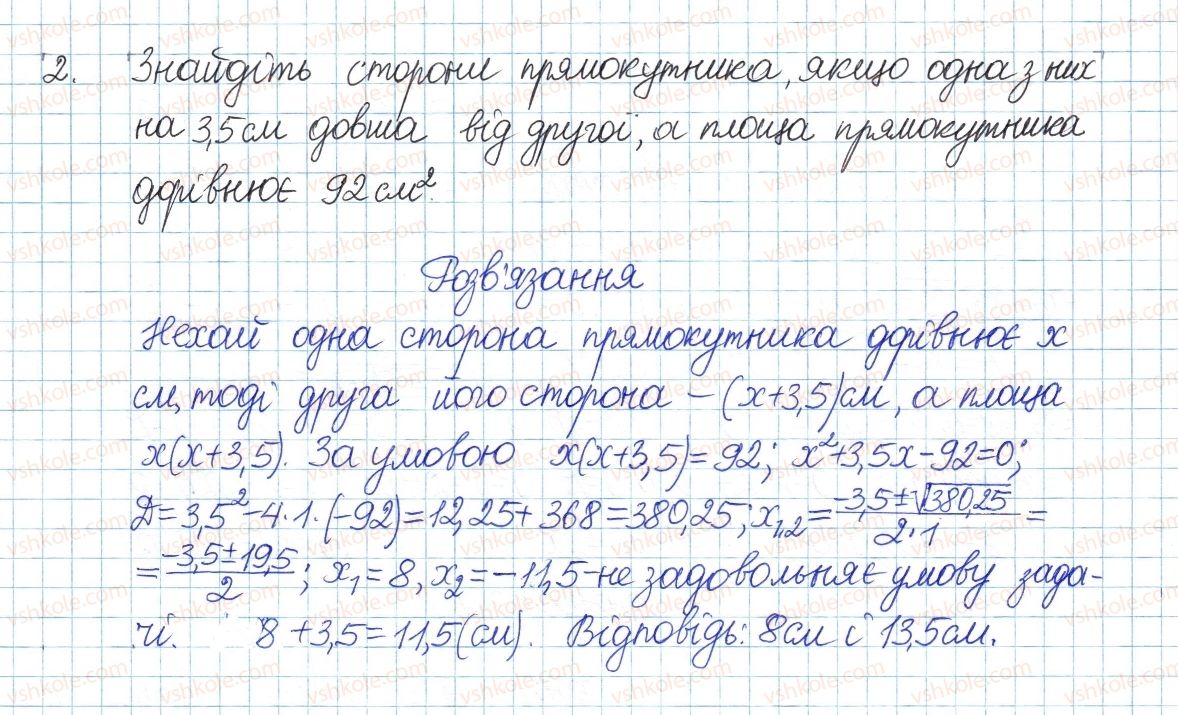 2. Знайдіть сторони прямокутника, якщо одна з них
на 3,5 см довша від другої, а площа прямокутника
дорівнює 92 см².
Розв'язання
Нехай одна сторона прямокутника дорівнює x
см, тоді друга його сторона – (x+3,5) см, а площа
x(x+3,5). За умовою x(x+3,5)=92; x²+3,5x-92=0;
Д=3,5²-4·1·(-92)=12,25+368=380,25; x₁,₂=(-3,5±√380,25)/(2·1)=
=(-3,5±19,5)/2; x₁=8, x₂=-11,5-не задовольняє умову зада-
чі. 8+3,5=11,5(см). Відповідь: 8см і 13,5см.